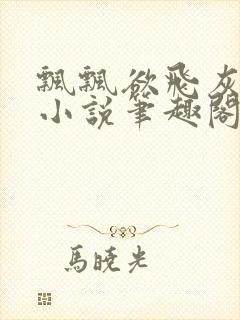 飄飄欲飛灰
小說筆趣閣
馬曉光